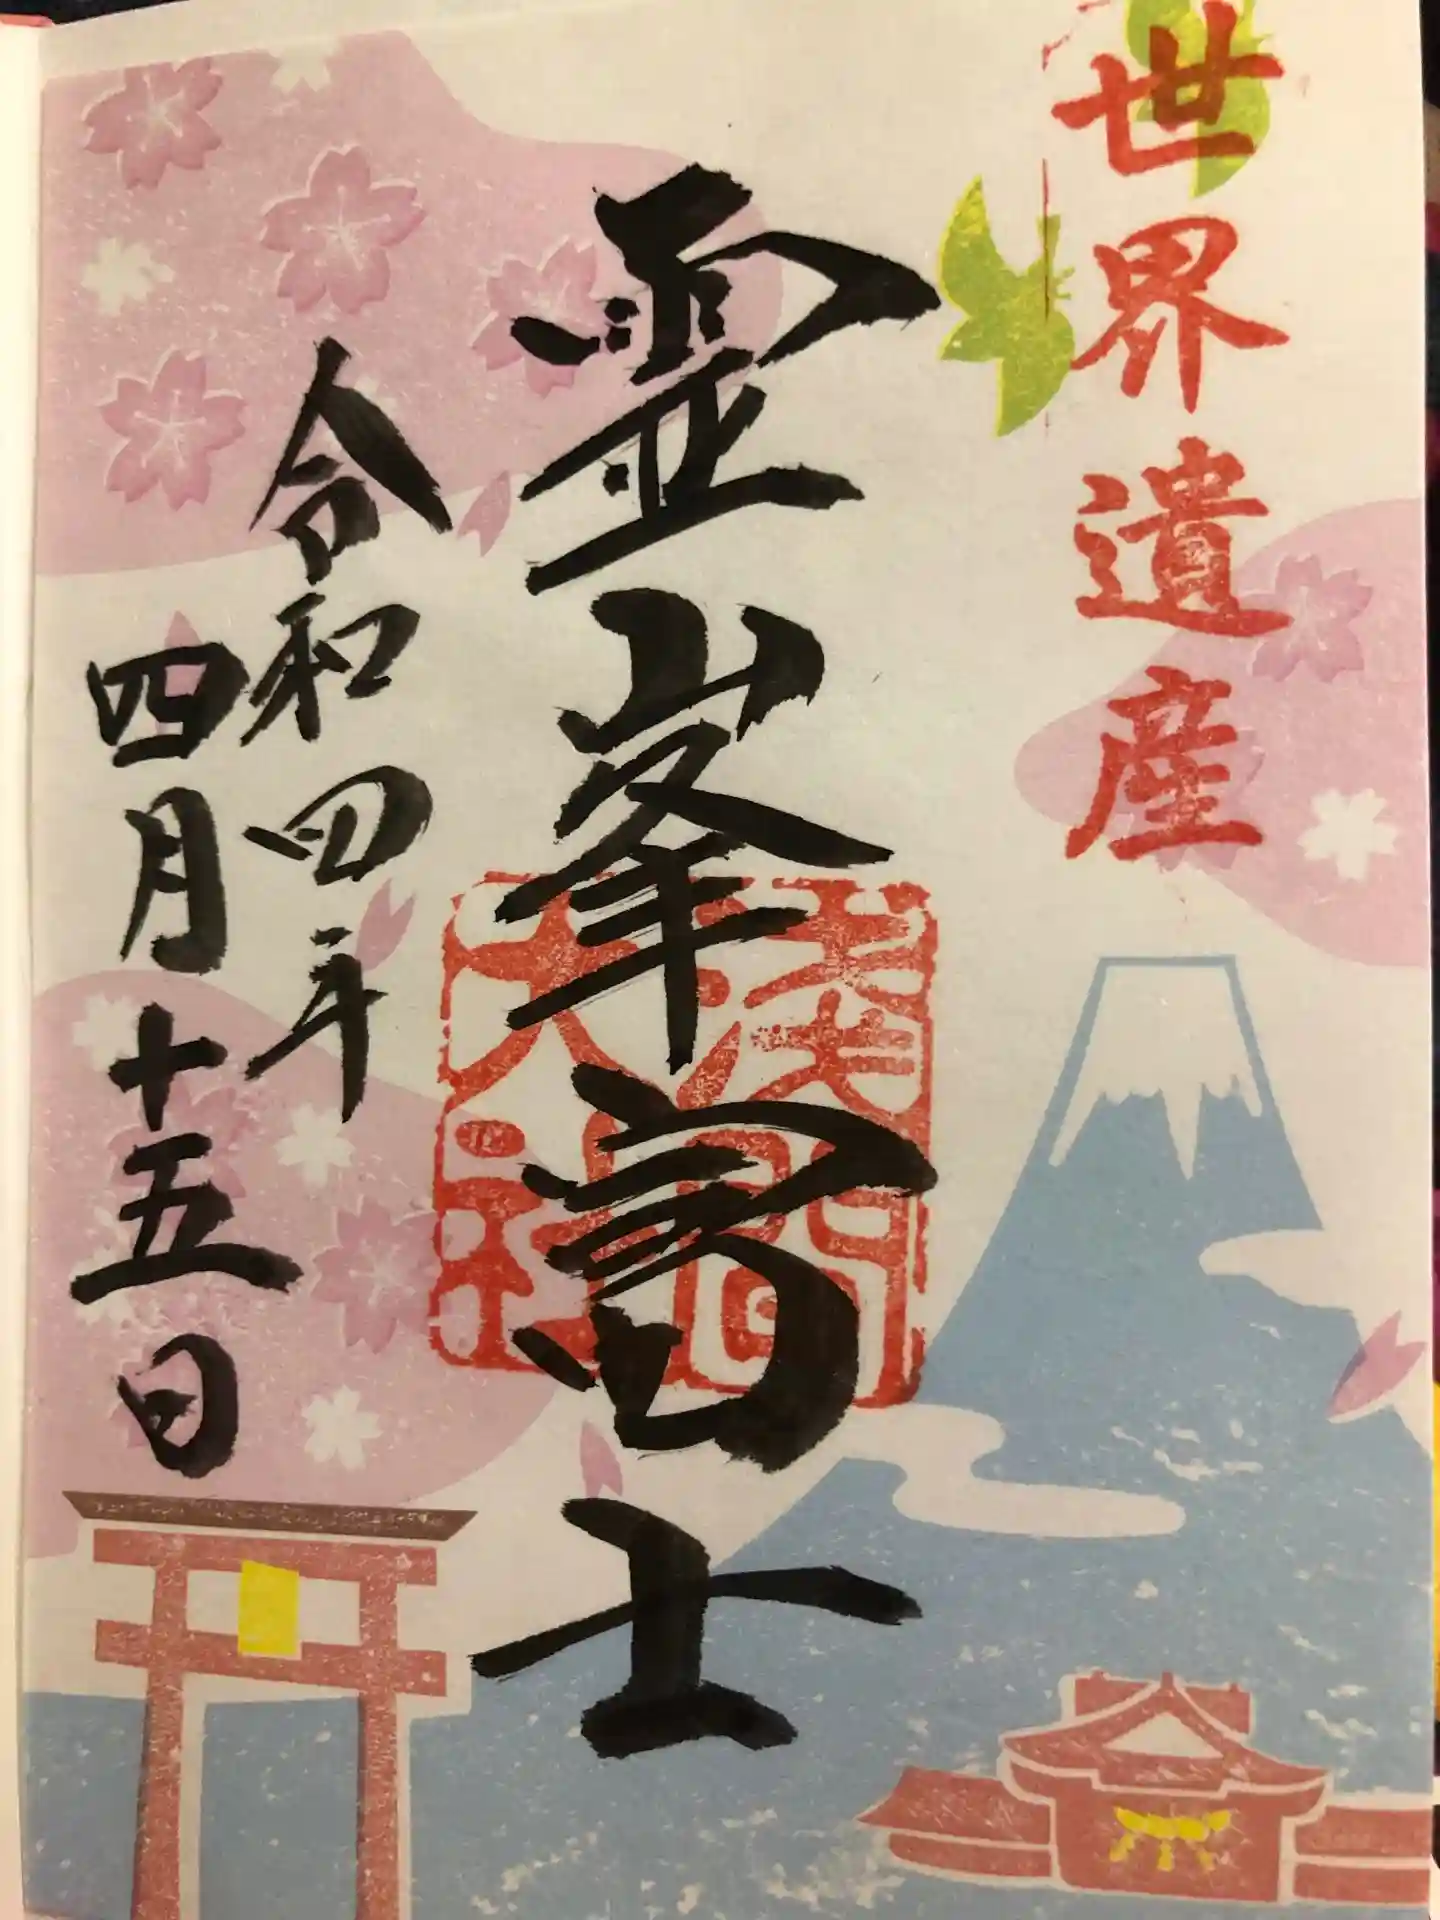 世界遺産
霊峯富士
浅間
大社
令和四年
四月十五日